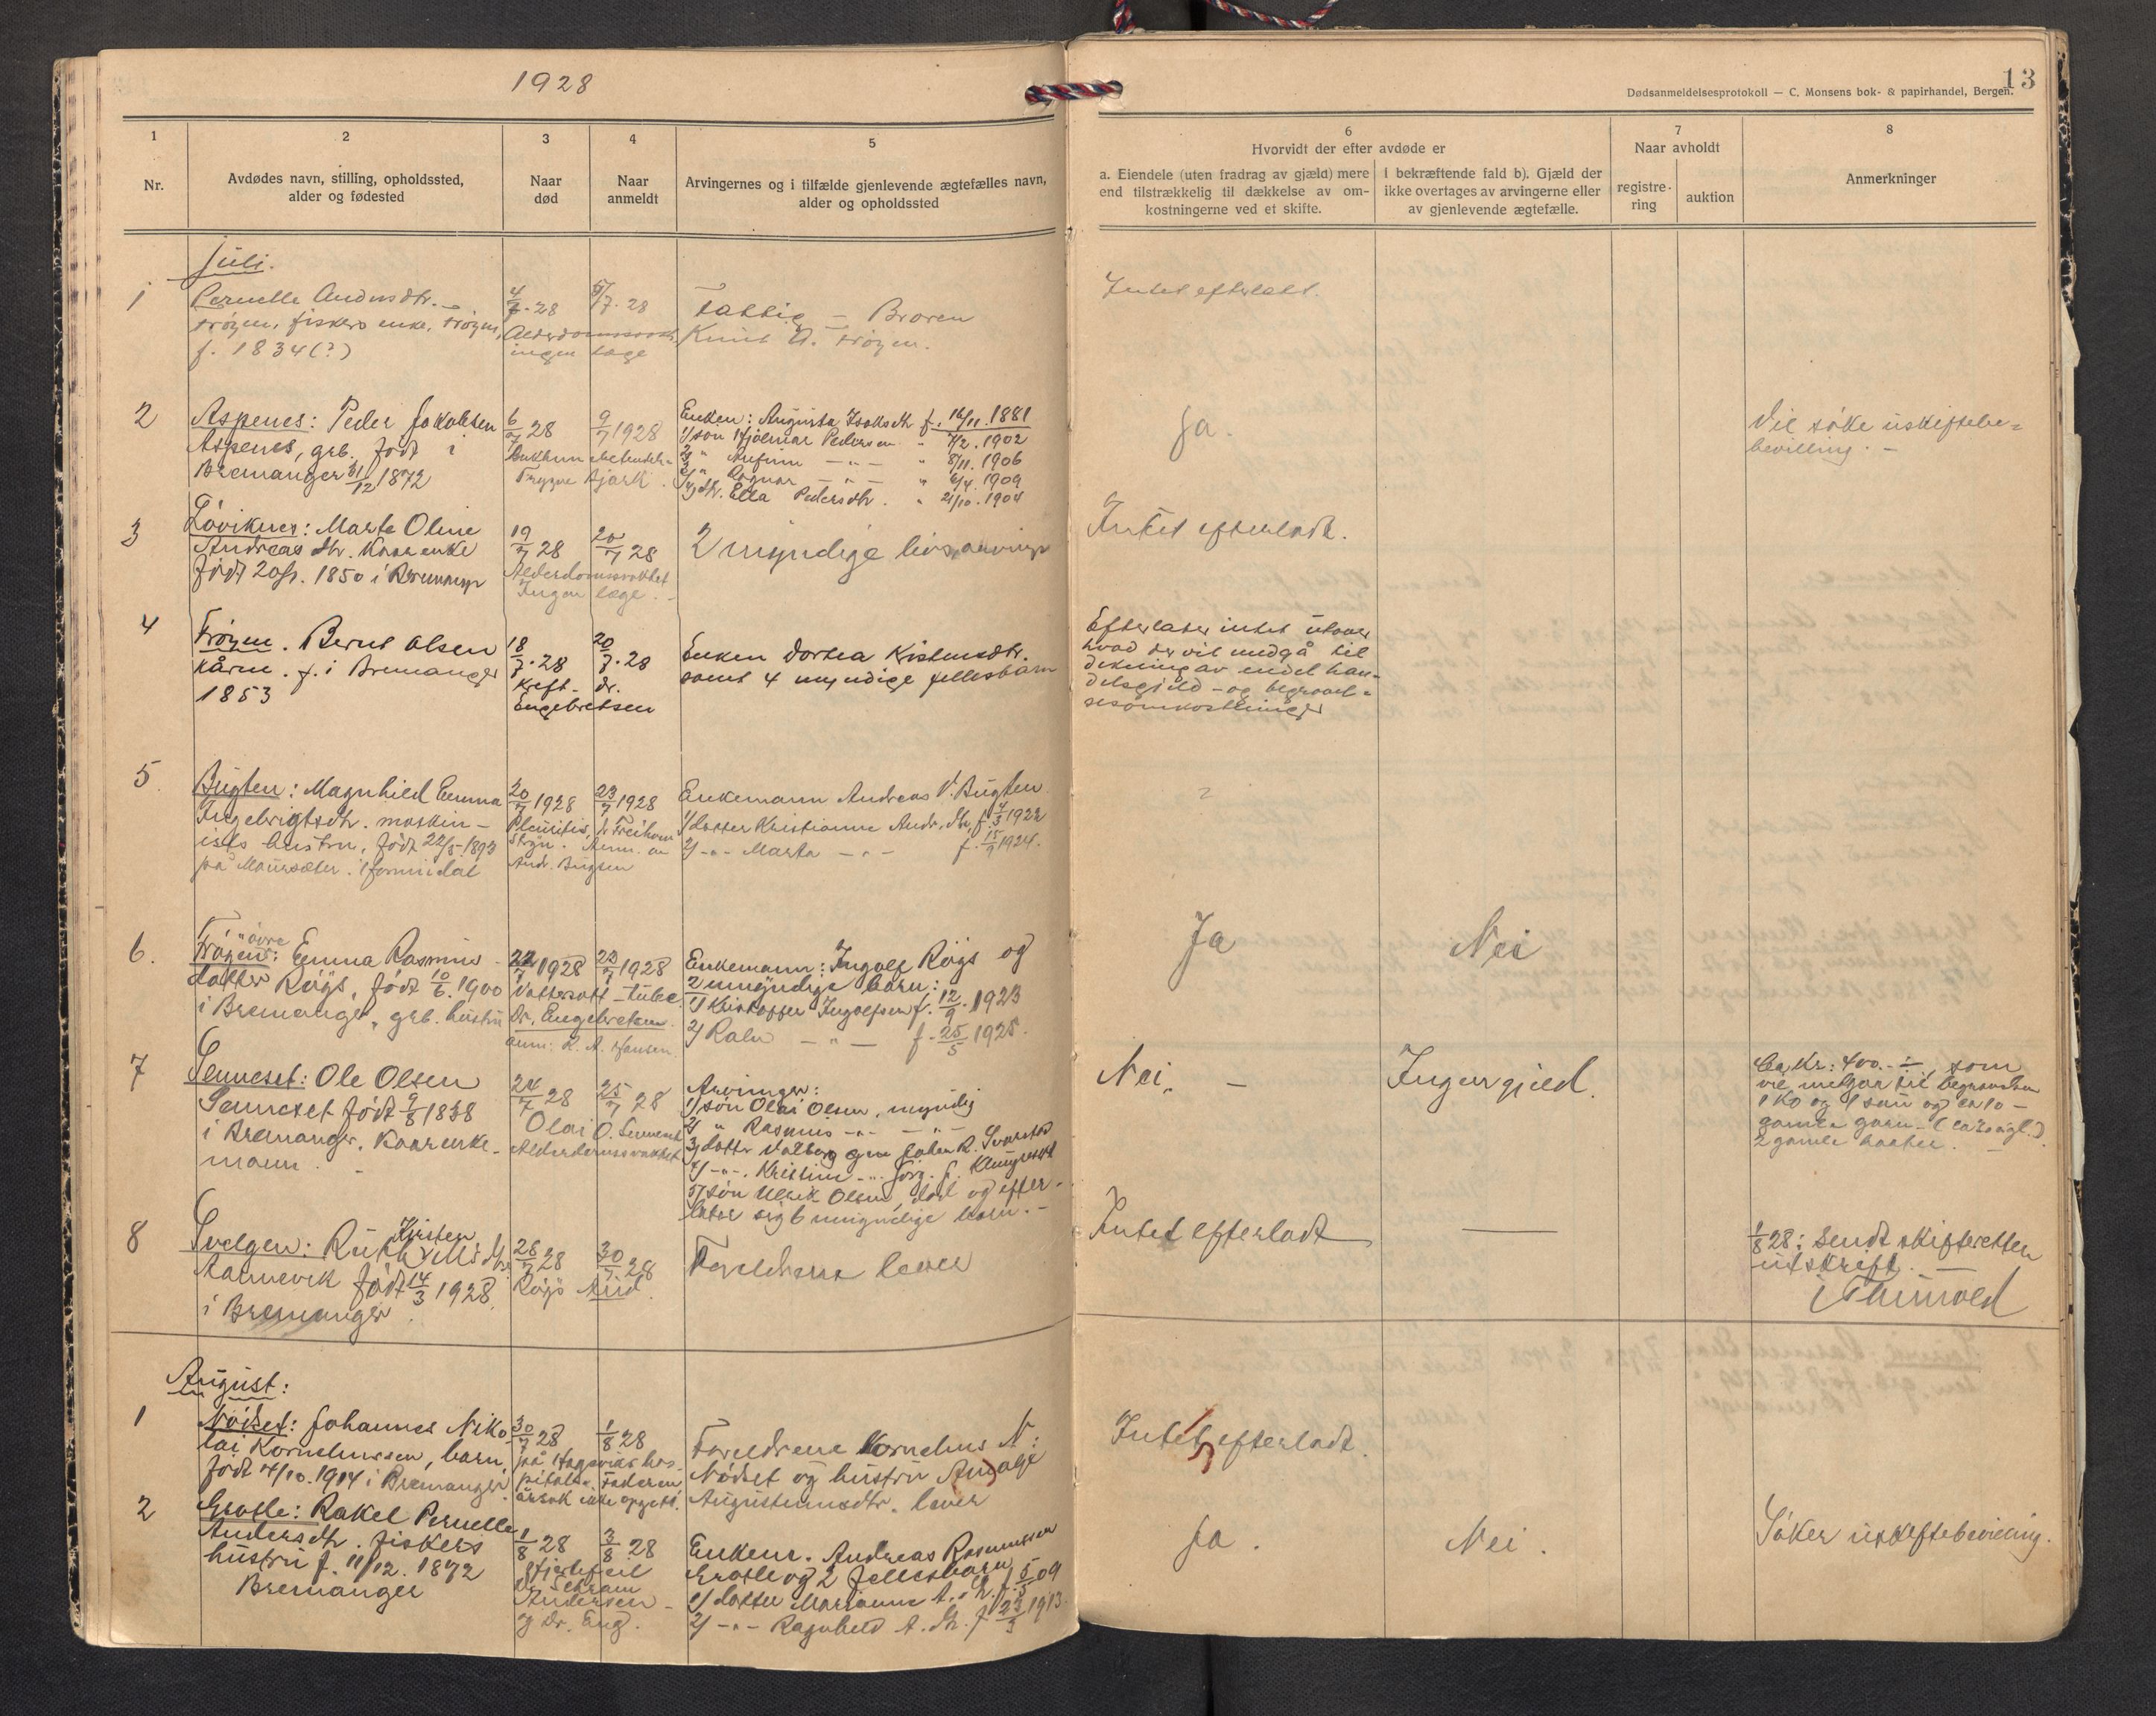 1928
13
Dødsanmeldelsesprotokoll — C. Monsens bok- & papirhandel, Bergen.
1
2
3
4
5
6
7
8
Nr.
Avdødes navn, stilling, opholdssted,
alder og fødested
Naar
død
Naar
anmeldt
Arvingernes og i tilfælde gjenlevende ægtefælles navn,
alder og opholdssted
Hvorvidt der efter avdøde er
a. Eiendele (uten fradrag av gjæld) mere
end tilstrækkelig til dækkelse av om-
kostningerne ved et skifte.
I bekræftende fald b). Gjæld der
ikke overtages av arvingerne eller
av gjenlevende ægtefælle.
Naar avholdt
registre-
ring
auktion
Anmerkninger
Juli.
1
Pernelle Andersdtr.
Frøyen, fiskers enke, Frøyen,
f. 1834(?)
4/7.28
5/7.28
ingen læge
Fattig — Broren
Knut A. Frøyen.
Intet efterlatt.
2
Aspenes: Peder Jakobsen
Aspenes, grb. født i
Bremanger 31/12 1872
6/7 28
9/7 1928
Enken: Augusta Isaksdtr f. 16/11.1881
1/ søn Hjalmar Pedersen " 7/2.1902
2/ " Anfinn —"— " 8/11.1906
3/ " Ragnar —"— " 6/4.1909
4/ dtr. Ella Pedersdtr. " 21/10.1904
Ja.
Vil søke uskiftebe=
bevilling. —
3
Løviknes: Marte Oline
Andreasdtr. Kaarenke
født 1850 i Bremanger
19/7 28
20/7 28
Alderdomssvakhet
Ingen læge. -
2 myndige livsarvinger
Intet efterladt.
4
Frøyen. Bernt Olsen
kårm. f. i Bremanger
1853
18/7.28
20/7.28
Kreft - dr.
Engebretsen
Enken Dortea Kristensdtr.
samt 4 myndige fellesbarn
Efterlater intet utover
hvad der vil medgå til
dekning av endel han-
delsgjeld - og begravel=
sesomkostninger
5
Bugten: Magnhild Emma
Ingebrigtsdtr. maskin-
ists hustru, født 22/5.1893
på Maursæter i Hornindal
20/7 1928
23/7 1928
Pleuritis,
Stryn.
Andr. Bugten
Enkemann Andreas V. Bugten
1/ datter Kristianne Andr.dtr, f. 4/3 1922
2/ —"— Marta —"— f. 15/9 1924.
6.
Frøyen øvre: Emma Rasmus-
datter Røys, født 10/6.1900
i Bremanger, grb. hustru
22/7 1928
23/7 1928
Vattersott - tube
Dr. Engebretsen.
anm: K. A. Hansen.
Enkemann: Ingolf Røys og
2 umyndige barn:
1/ Kristoffer Ingolfsen f. 12/9.1923
2/ —"— f. 25/5 1925.
Ja
Nei
7
Senneset: Ole Olsen
Senneset født 9/8 1838
i Bremanger. Kaarenke-
mann.
24/7 28
25/7 28
Olai O. Senneset
Alderdomssvakhet
Arvinger:
1/ søn Olai Olsen, myndig
2/ " Rasmus —"— —"—
3/ datter Valborg
4/ —"— Kristine
5/ søn Ulrik Olsen, død og efter-
later sig 6 umyndige barn. -
Nei. —
Ingen gjeld.
Ca. Kr: 400.- som
vil medgaa til begravelsen
1 ko og 1 sau og ca 10 -
gamle garn
2 gamle baater.
8
Svelgen: Ruth Kirsten
Aarnevik født 14/3 1928
i Bremanger.
28/7 28
30/7 28
Foreldrene lever
Intet efterladt
1/8 28: sendt skifteretten
utskrift. —
August:
1
Nødset: Johannes Niko
lai Korneliussen, barn,
født 4/10.1914 i Bremanger.
30/7 28
1/8 28
Faderen
årsak ikke opgitt.
Foreldrene Kornelius N:
Nødset og hustru
Augustinusdtr. lever
Intet efterladt.
2
Grotle: Rakel Pernelle
Andersdtr. fiskers
hustru f. 11/12.1872
Bremanger
1/8 28
3/8 28
Hjertefeil
Andersen -
og Dr. Eng.
Enkem. Andreas Rasmussen
Grotle og 2 fellesbarn
1/ datter Marianne A. dtr. f. 5/5 09
2/ —"— Ragnhild A. dtr. f. 23/3 1913.
Ja.
Nei.
Søker uskiftebevilling.